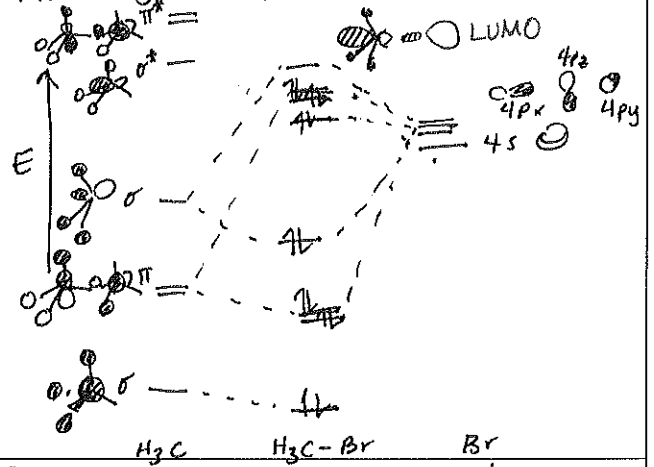 π*
LUMO
σ*
4pz
4px
4py
E
4s
σ
π
σ
H₃C
H₃C-Br
Br